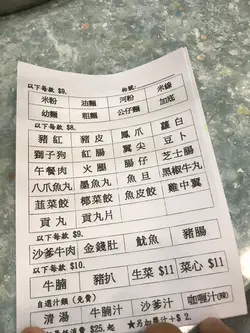 以下每款 $9. 粉號:
米粉 油麵 河粉 米線
幼麵 粗麵 公仔麵 加底
以下每款 $8.
豬紅 豬皮 鳳爪 蘿白
獅子狗 紅腸 翼尖 豆卜
午餐肉 火腿 腸仔 芝士腸
八爪魚丸 墨魚丸 魚旦 黑椒牛丸
韮菜餃 椰菜餃 魚皮餃 雞中翼
貢丸 貢丸片
以下每款 $9.
沙爹牛肉 金錢肚 魷魚 豬腸
以下每款 $10.
牛腩 豬扒 生菜 $11 菜心 $11
自選汁麵 (免費)
清湯 牛腩汁 沙爹汁 咖喱汁(辣)
低消費 $25.起 ★另加薑汁+$2.